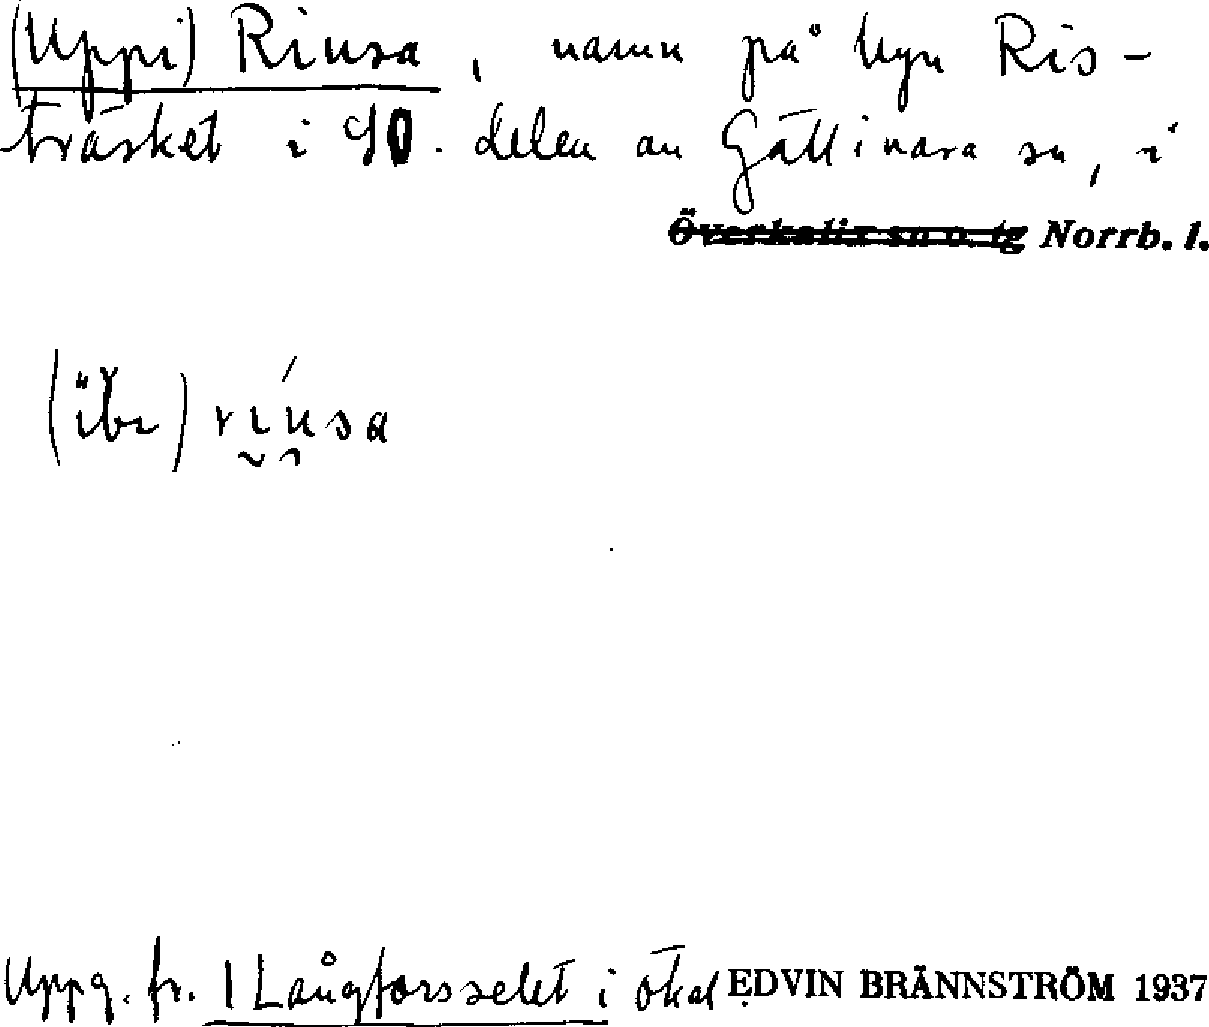 (Uppi) Riusa, namn på byn Ris-
träsket i SO. delen av Gällivara sn, i
Överkalix sn o. tg Norrb. l.
riusa
Uppg. fr. 1 Långforsselet i ökal EDVIN BRÄNNSTRÖM 1937